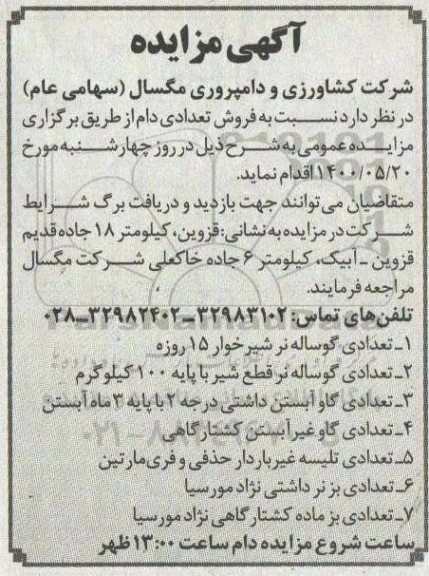 آگهی مزایده
شرکت کشاورزی و دامپروری مگسال (سهامی عام)
در نظر دارد نسبت به فروش تعدادی دام از طریق برگزاری
مزایده عمومی به شرح ذیل در روز چهارشنبه مورخ
۱۴۰۰/۰۵/۲۰ اقدام نماید.
متقاضیان می توانند جهت بازدید و دریافت برگ شرایط
شرکت در مزایده به نشانی: قزوین، کیلومتر ۱۸ جاده قدیم
قزوین - آبیک، کیلومتر ۶ جاده خاکعلی شرکت مگسال
مراجعه فرمایند.
تلفن های تماس: ۳۲۹۸۳۱۰۲ - ۳۲۹۸۲۴۰۲-۰۲۸
۱- تعدادی گوساله نر شیرخوار ۱۵ روزه
۲- تعدادی گوساله نر قطع شیر با پایه ۱۰۰ کیلوگرم
۳- تعدادی گاو آبستن داشتی درجه ۲ با پایه ۳ ماه آبستن
۴- تعدادی گاو غیر آبستن کشتارگاهی
۵- تعدادی تلیسه غیرباردار حذفی و فری مارتین
۶- تعدادی بز نر داشتی نژاد مورسیا
۷- تعدادی بز ماده کشتارگاهی نژاد مورسیا
ساعت شروع مزایده دام ساعت ۱۳:۰۰ ظهر